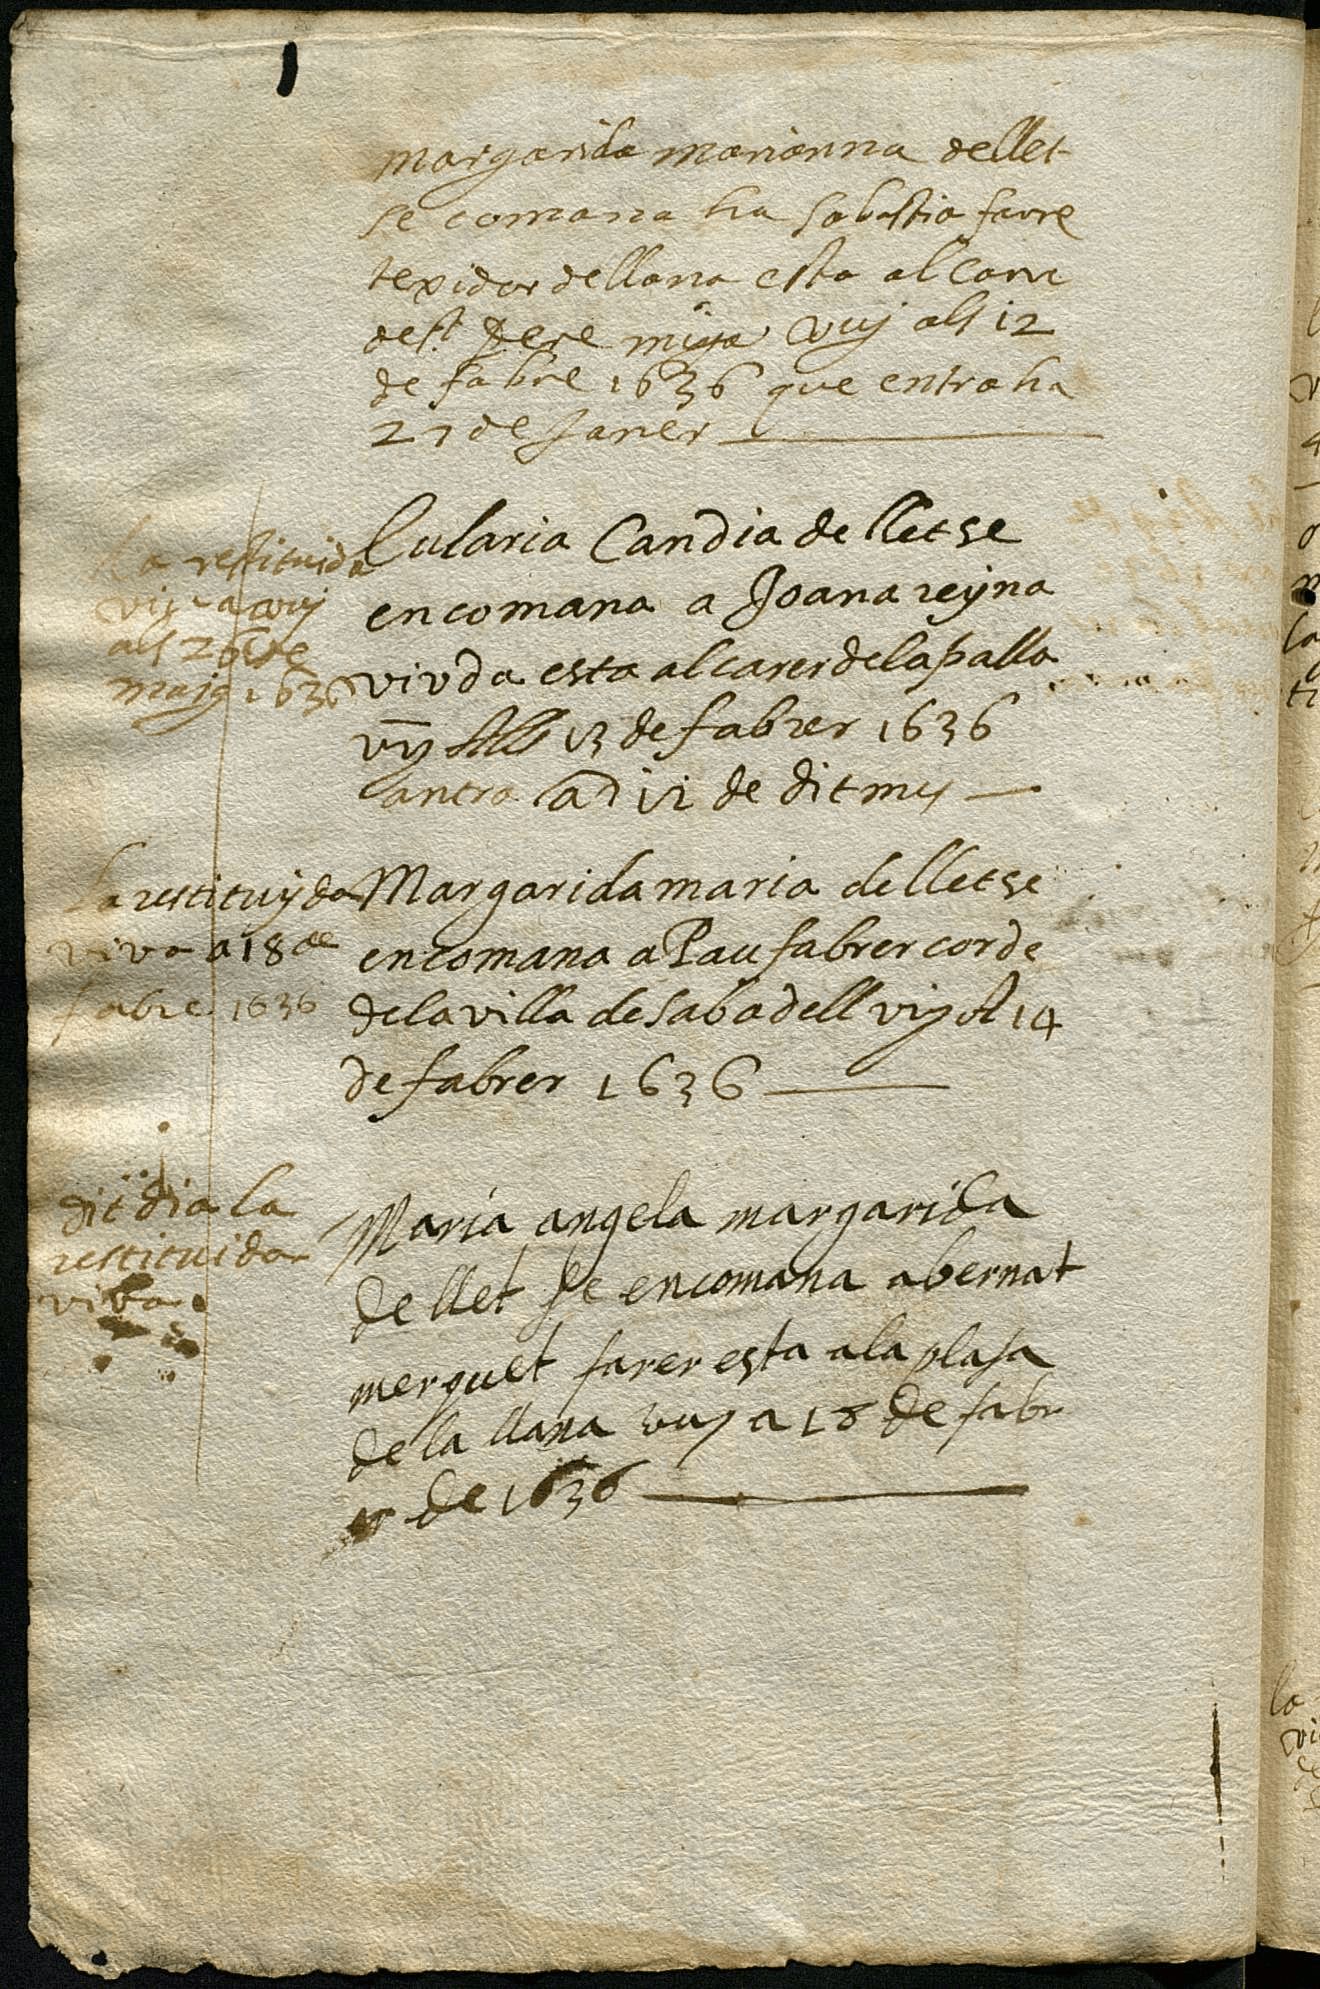 margarida marianna dellet
se comana ha sabastia farre
texidor dellana esta al Carre
de st pere mija vuj als 12
de fabre 1636 que entra ha
27 de Janer
la restituida
viva vuj
als 26 de
maig 1636
Eularia Candia de llet se
encomana a Joana reyna
viuda esta al carer de la palla
vuy 13 de fabrer 1636
antra a di 12 de dit mes
la restituyda
viva a 18 de
fabre 1636
Margarida maria de llet se
encomana a Pau fabrer corde
de la villa de sabadell vuy A 14
de fabrer 1636
dit dia la
restituida
viva
Maria angela margarida
de llet se encomana a bernat
merquet farer esta a la plasa
de la llana vuy a 18 de fabr
er de 1636